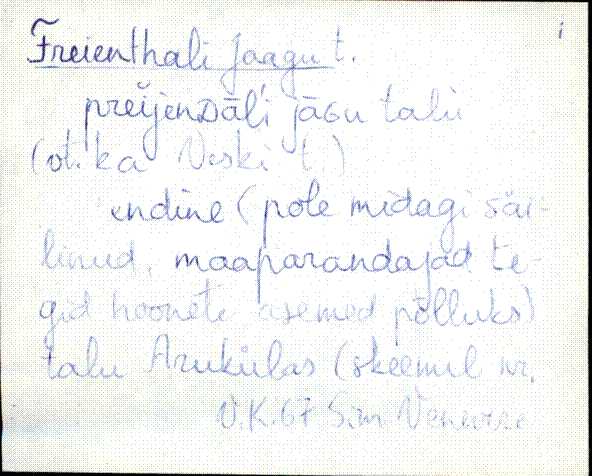 i
Freienthali Jaagu t.
preĭjenDāl̦i jāGu talu
(ot. ka Veski t.)
endine (pole midagi säi-
linud, maaparandajad te-
gid hoonete asemed põlluks)
talu Aruküլas (skeemil nr.
V.K. 67 S.m. Venevere